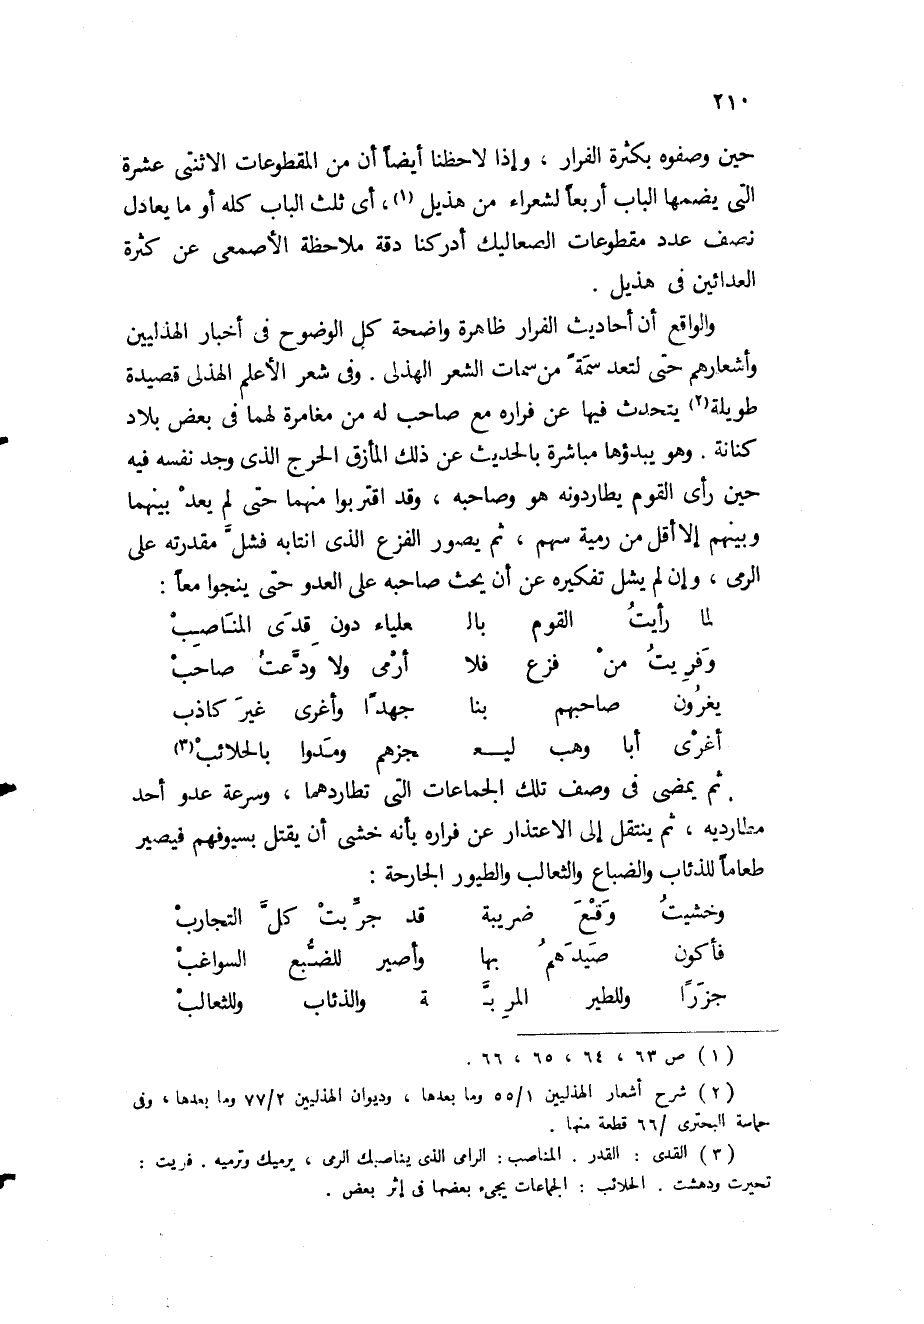 ٢١٠
حين وصفوه بكثرة الفرار ، وإذا لاحظنا أيضاً أن من المقطوعات الاثنتى عشرة
التى يضمها الباب أربعاً لشعراء من هذيل (١)، أى ثلث الباب كله أو ما يعادل
نصف عدد مقطوعات الصعاليك أدركنا دقة ملاحظة الأصمعى عن كثرة
العدائين فى هذيل .
والواقع أن أحاديث الفرار ظاهرة واضحة كل الوضوح فى أخبار الهذليين
وأشعارهم حتى لتعد سمَة ً من سمات الشعر الهذلى . وفى شعر الأعلم الهذلى قصيدة
طويلة(٢) يتحدث فيها عن فراره مع صاحب له من مغامرة لهما فى بعض بلاد
كنانة . وهو يبدؤها مباشرة بالحديث عن ذلك المأزق الحرج الذى وجد نفسه فيه
حين رأى القوم يطاردونه هو وصاحبه ، وقد اقتربوا منهما حتى لم يعد ْ بينهما
وبينهم إلا أقل من رمية سهم ، ثم يصور الفزع الذى انتابه فشل َّ مقدرته على
الرمى ، وإن لم يشل تفكيره عن أن يحث صاحبه على العدو حتى ينجوا معاً :
لما رأيتُ القوم بالـ علياء دون قِدَى المنَاصبْ
وَفَرِيتُ منْ فزع فلا أرْمى ولا ودَّعتُ صاحبْ
يغرُون صاحبهم بنا جهدًا وأغرى غيرَ كاذب
أغرْى أبا وهب ليـعـ ـجزهم ومَدوا بالحلائبْ(٣)
ثم يمضى فى وصف تلك الجماعات التى تطاردهما ، وسرعة عدو أحد
مطارديه ، ثم ينتقل إلى الاعتذار عن فراره بأنه خشى أن يقتل بسيوفهم فيصير
طعاماً للذئاب والضباع والثعالب والطيور الجارحة :
وخشيتُ وَقْعَ ضريبة قد جرِّبتْ كلَّ التجاربْ
فأكون صَيدَهمُ بها وأصير للضُّبع السواغبْ
جزَرًا وللطير المرِبـَّ ـة والذئاب وللثعالبْ
( ١ ) ص ٦٣ ، ٦٤ ، ٦٥ ، ٦٦ .
( ٢ ) شرح أشعار الهذليين ١/٥٥ وما بعدها ، وديوان الهذليين ٢/٧٧ وما بعدها ، وفى
حماسة البحترى /٦٦ قطعة منها .
( ٣ ) القدى : القدر . المناصب : الرامى الذى يناصبك الرمى ، يرميك وترميه . فريت :
تحيرت ودهشت . الحلائب : الجماعات يجىء بعضها فى إثر بعض .